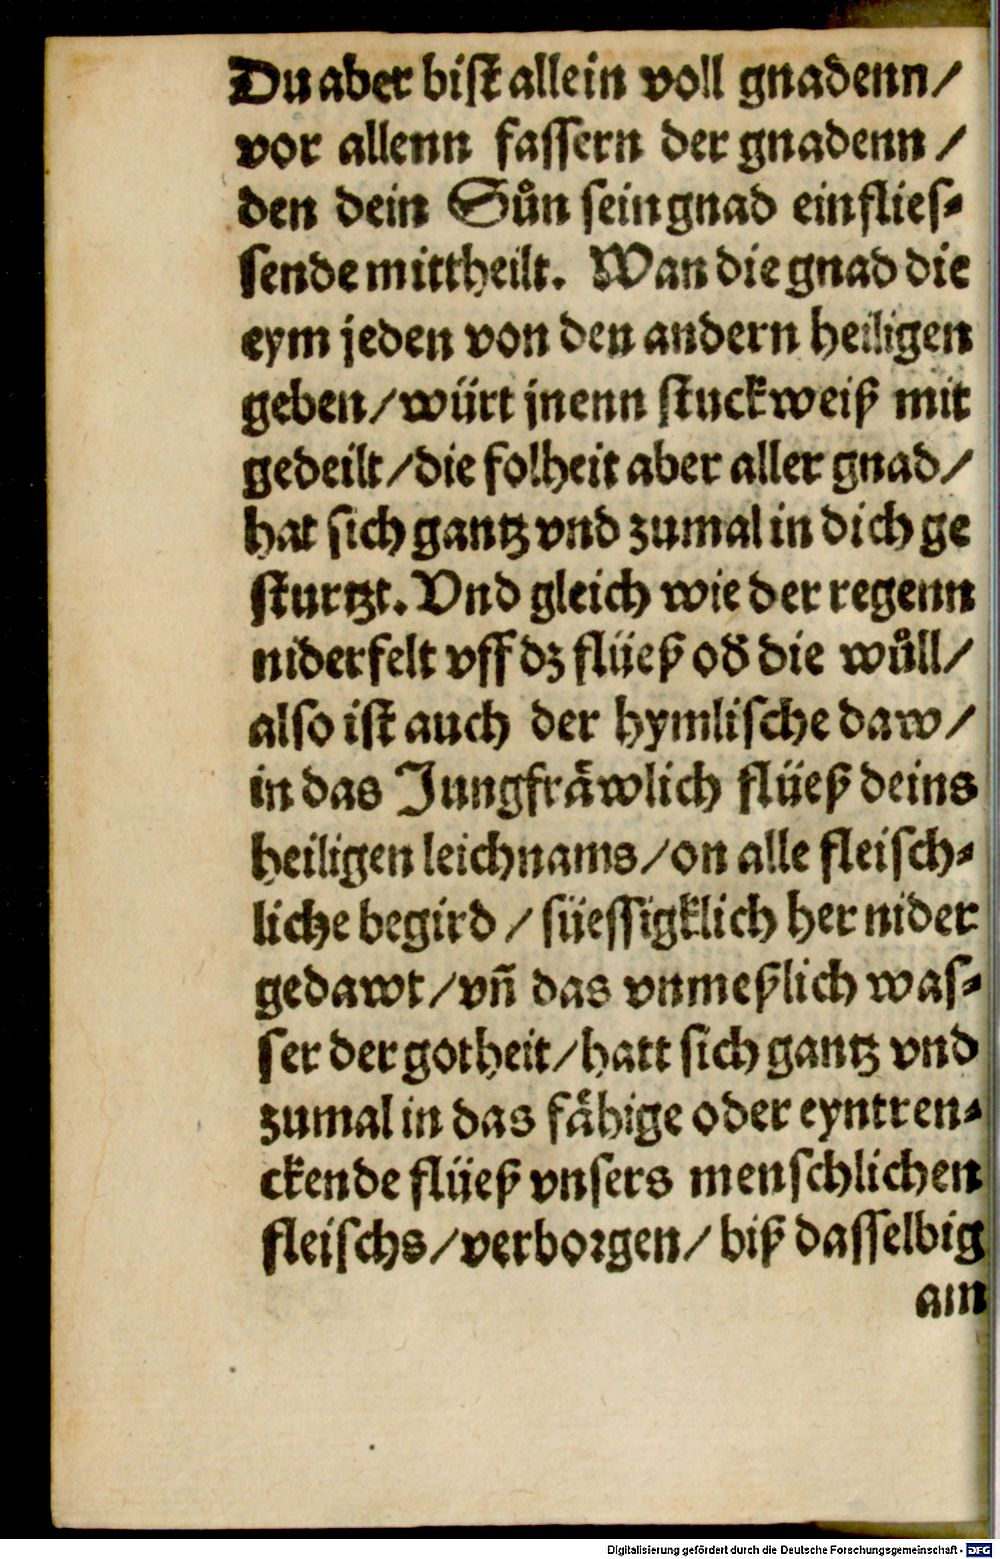 Du aber bist allein voll gnadenn/
vor allenn fassern der gnadenn /
den dein Sůn sein gnad einflies⸗
sende mittheilt. Wan die gnad die
eym jeden von den andern heiligen
geben/würt jnenn stuckweiß mit
gedeilt/die folheit aber aller gnad/
hat sich gantz vnd zumal in dich ge
sturtzt. Vnd gleich wie der regenn
niderfelt vff dz flüeß od̄ die wůll/
also ist auch der hymlische daw/
in das Jungfraͤwlich flüeß deins
heiligen leichnams/on alle fleisch⸗
liche begird / süessigklich her nider
gedawt/vñ das vnmeßlich was⸗
ser der gotheit/hatt sich gantz vnd
zumal in das faͤhige oder eyntren⸗
ckende flüeß vnsers menschlichen
fleischs/verborgen/ biß dasselbig
am
Digitalisierung gefördert durch die Deutsche Forschungsgemeinschaft - DFG